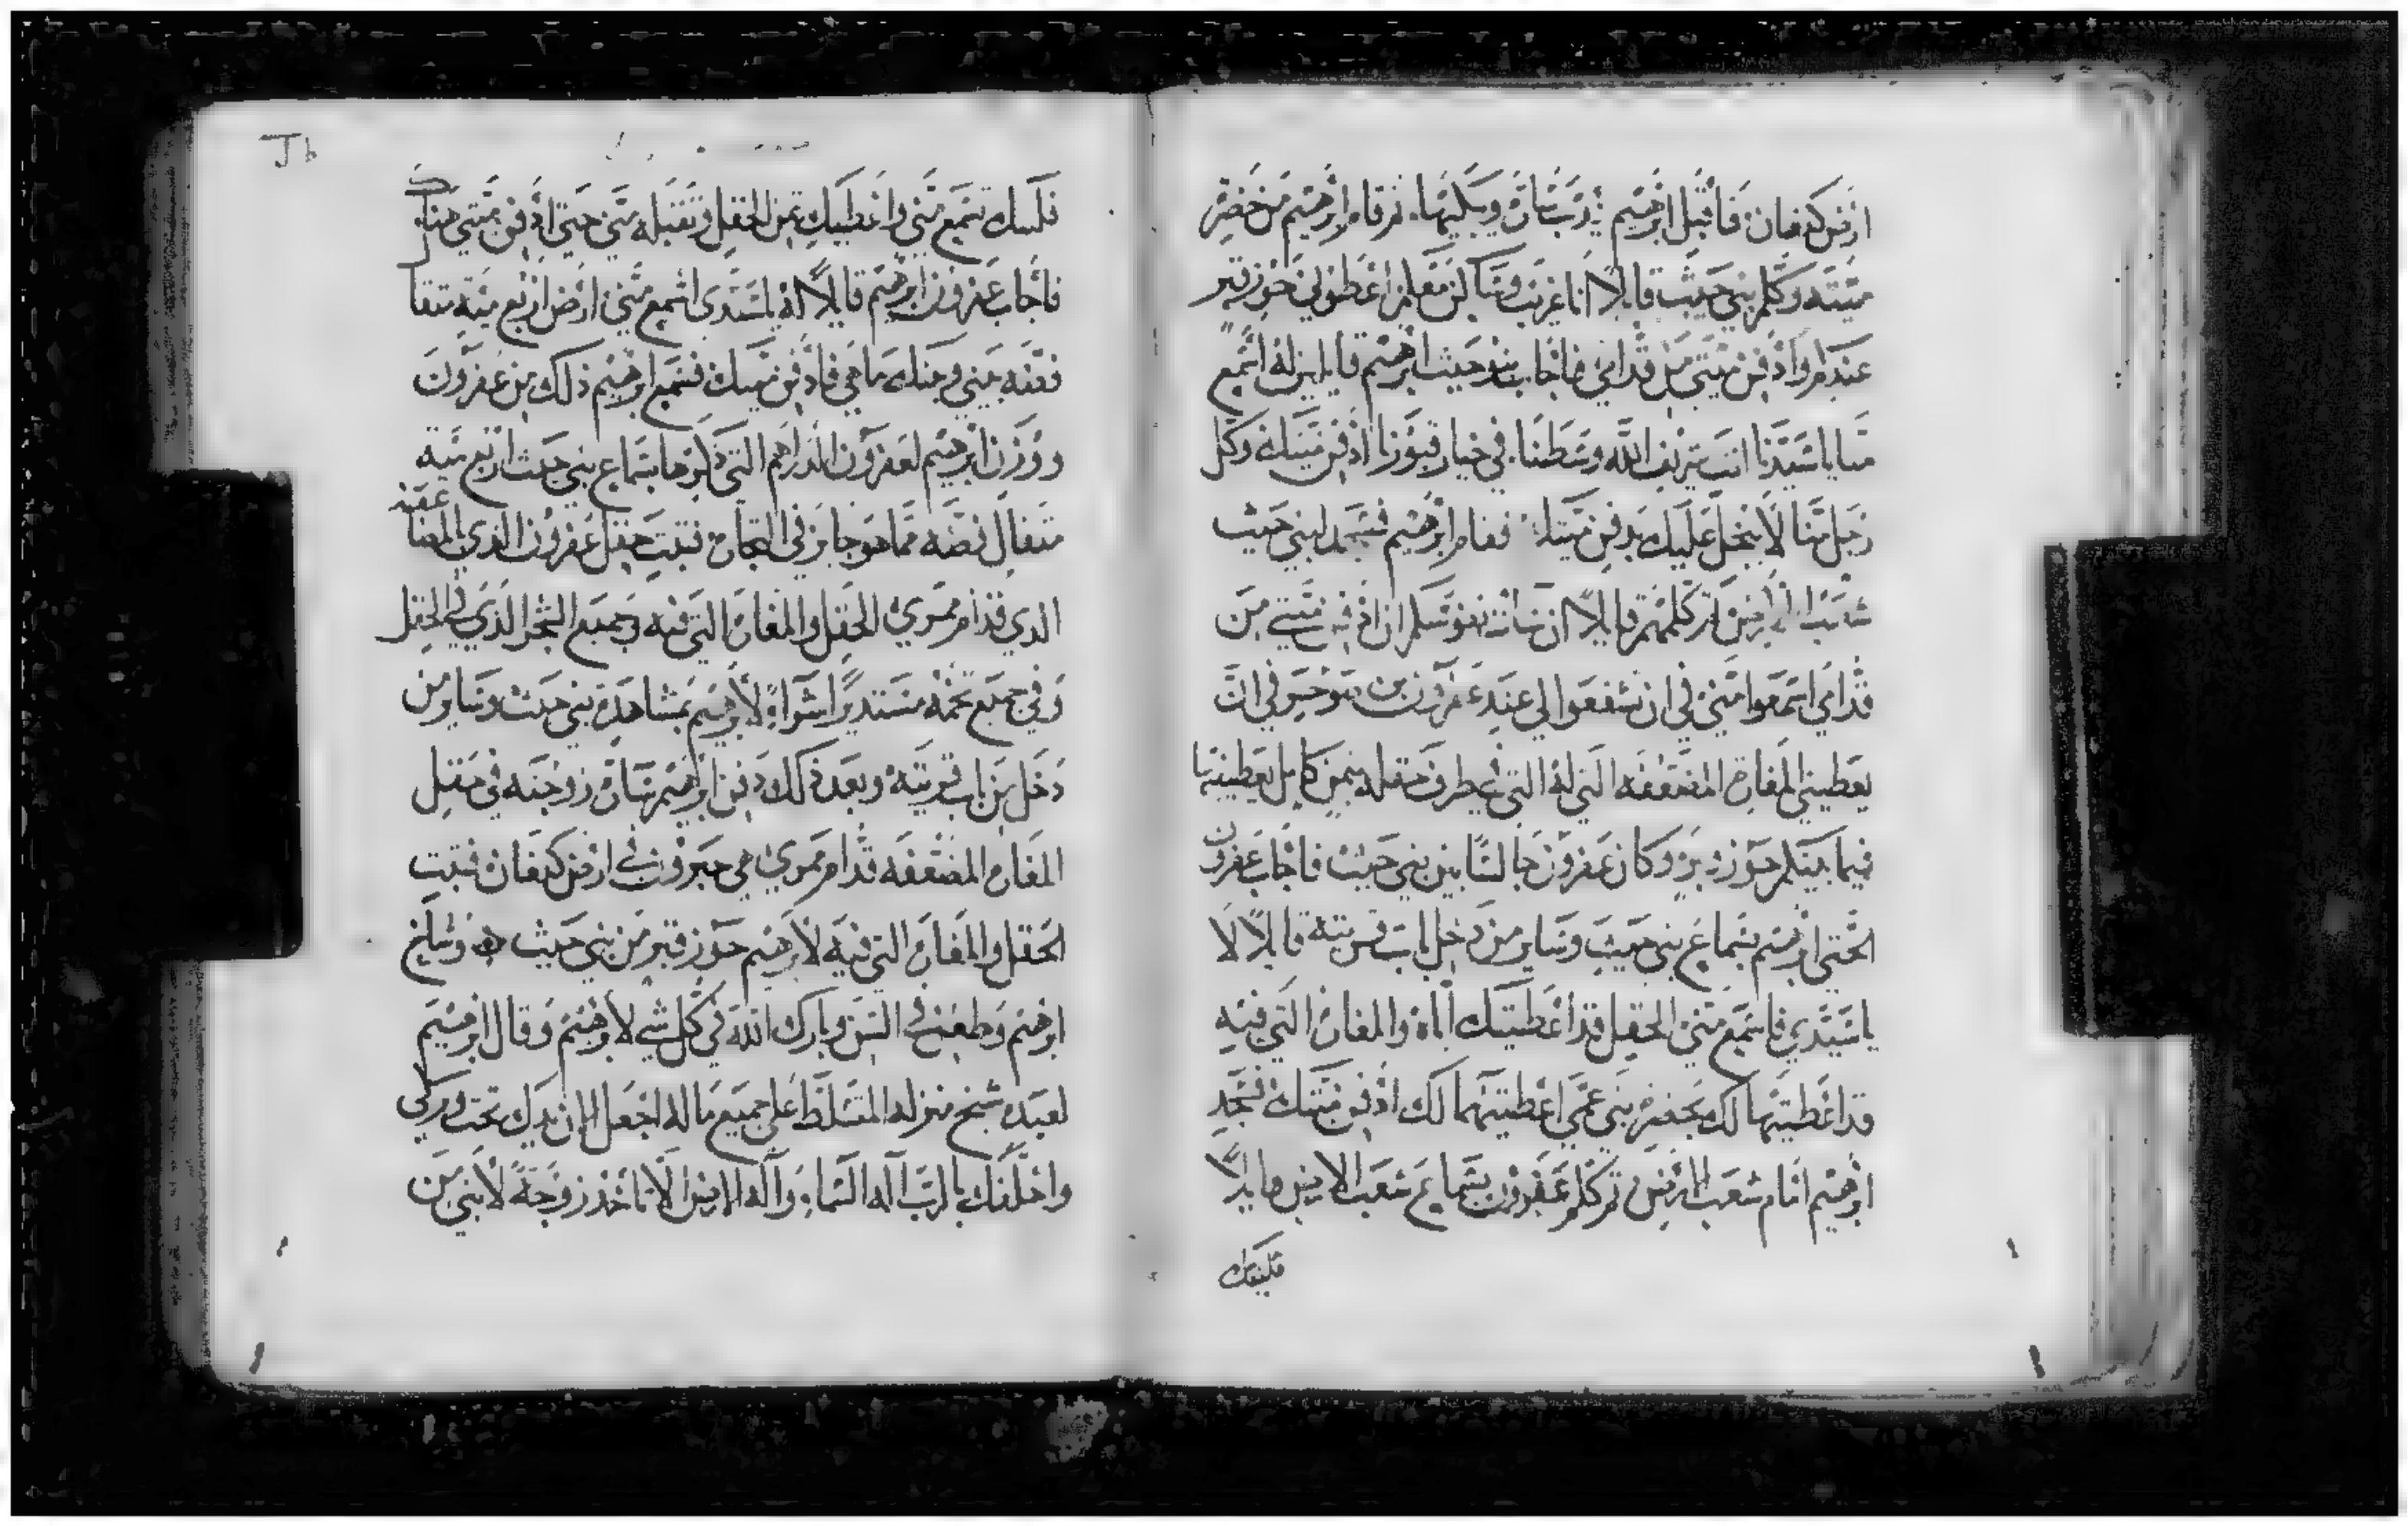 ارض كنعان فاقبل ابرهيم يندب سارة ويبكيها. ثم قام ابرهيم من حضرة
ميته وكلم بني حيث قايلا انا غريب وساكن معكم اعطوني حوز قبر
عندكم وادفن ميتي من قدامي فاجاب بنو حيث ابرهيم قايلين له اسمع
منا يا سيدنا انت شريف الله وسطنا في خيار قبورنا ادفن ميتك وكل
رجل منا لا يبخل عليك بدفن ميتك فقام ابرهيم فسجد لبني حيث
شعب الارض ثم كلمهم قايلا ان شات نفوسكم ان ادفن ميتي من
قدامي اسمعوا مني في ان تشفعوا الي عند عفرون بن صوحر في ان
يعطيني المغارة المضعفه التي له التي في طرف حقله بثمن كامل يعطينيها
فيما بينكم حوز قبر وكان عفرون جالسا بين بني حيث فاجاب عفرون
الحتي ابرهيم بسماع بني حيث وساير من دخل باب قريته قايلا لا
يا سيدي فاسمع مني الحقل قد اعطيتك اياه والمغارة التي فيه
قد اعطيتها لك بحضرة بني عمي اعطيتهما لك ادفن ميتك فسجد
ابرهيم امام شعب الارض ثم كلم عفرون بسماع شعب الارض قايلا
فليتك
فليتك تسمع مني واعطيك ثمن الحقل وتقبله مني حتى ادفن ميتي هناك
فاجاب عفرون ابرهيم قايلا له يا سيدي اسمع مني ارض اربع ميه مثقا
فضه بيني وبينك ما هي فادفن ميتك فسمع ابرهيم ذلك من عفرون
ووزن ابرهيم لعفرون الدراهم التي ذكرها بسماع بني حيث اربع ميه
مثقال فضه مما هو جايز في التجار فثبت حقل عفرون الذي بالمضا
عفه
الذي قدام ممري الحقل والمغارة التي فيه وجميع الشجر الذي في الحقل
وفي جميع تخمه مستديرا شراء لابرهيم بمشاهدة بني حيث وساير من
دخل من باب قريته وبعد ذلك دفن ابرهيم سارة زوجته في حقل
المغارة المضعفه قدام ممري هي حبرون في ارض كنعان فثبت
الحقل والمغارة التي فيه لابرهيم حوز قبر من بني حيث وشاخ
ابرهيم وطعن في السن وبارك الله في كل شي لابرهيم وقال ابرهيم
لعبده شيخ منزله المتسلط على جميع ما له اجعل الان يدك تحت وركي
واحلفك بالرب اله السماء واله الارض الا تاخذ زوجة لابني من